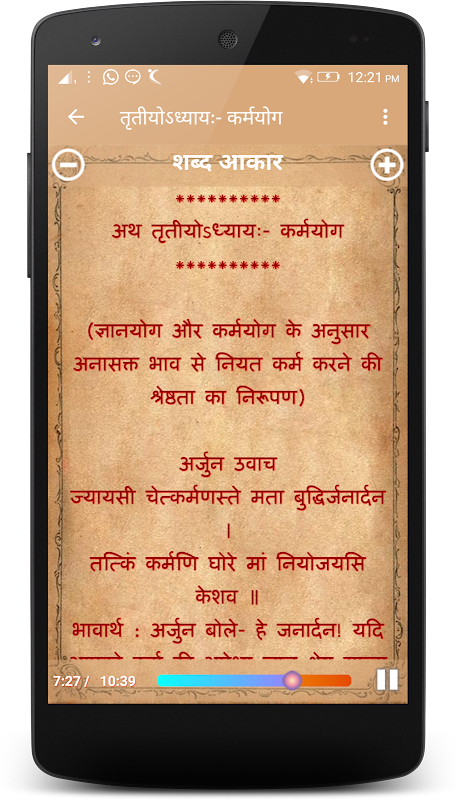 12:21 PM
तृतीयोऽध्यायः- कर्मयोग
शब्द आकार
**********
अथ तृतीयोऽध्यायः- कर्मयोग
**********
(ज्ञानयोग और कर्मयोग के अनुसार
अनासक्त भाव से नियत कर्म करने की
श्रेष्ठता का निरूपण)
अर्जुन उवाच
ज्यायसी चेत्कर्मणस्ते मता बुद्धिर्जनार्दन
।
तत्किं कर्मणि घोरे मां नियोजयसि
केशव ॥
भावार्थ : अर्जुन बोले- हे जनार्दन! यदि
7:27 / 10:39